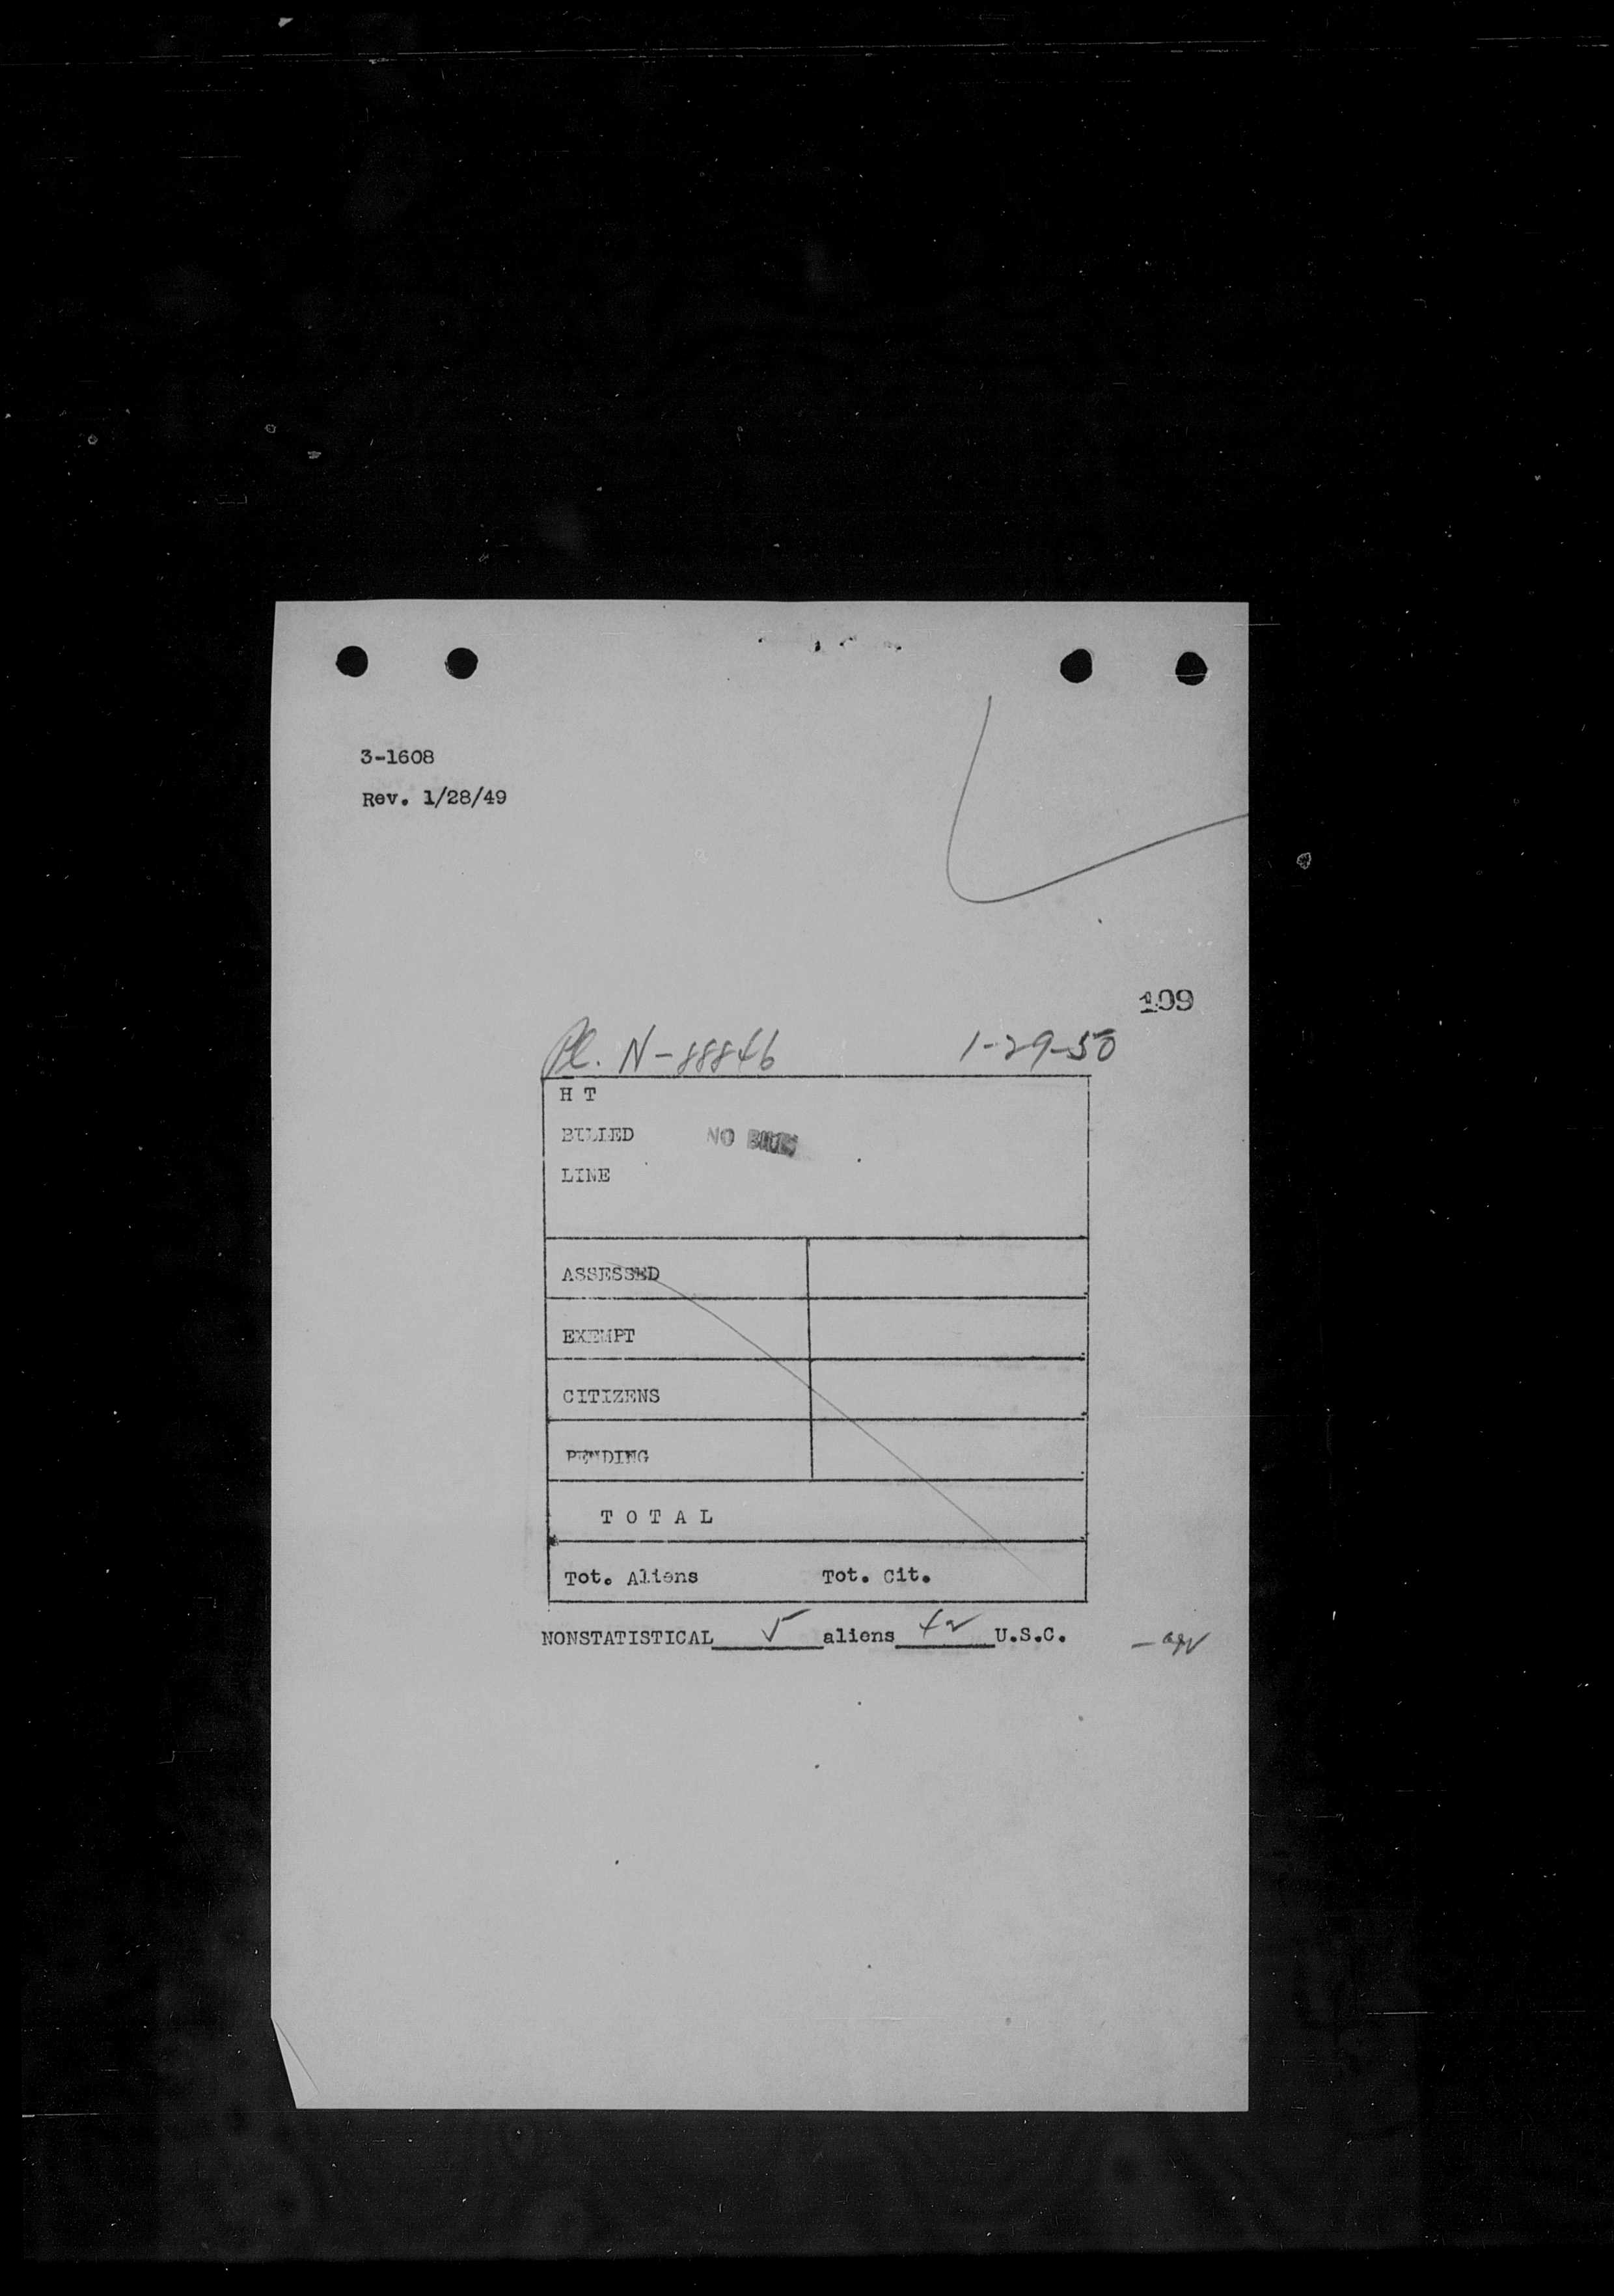 3-1608
Rev. 1/28/49
109
Pl. N-88846 1-29-50
H T
BILLED NO
LINE
ASSESSED
EXEMPT
CITIZENS
PENDING
T O T A L
Tot. Aliens Tot. Cit.
NONSTATISTICAL 5 aliens 42 U.S.C.